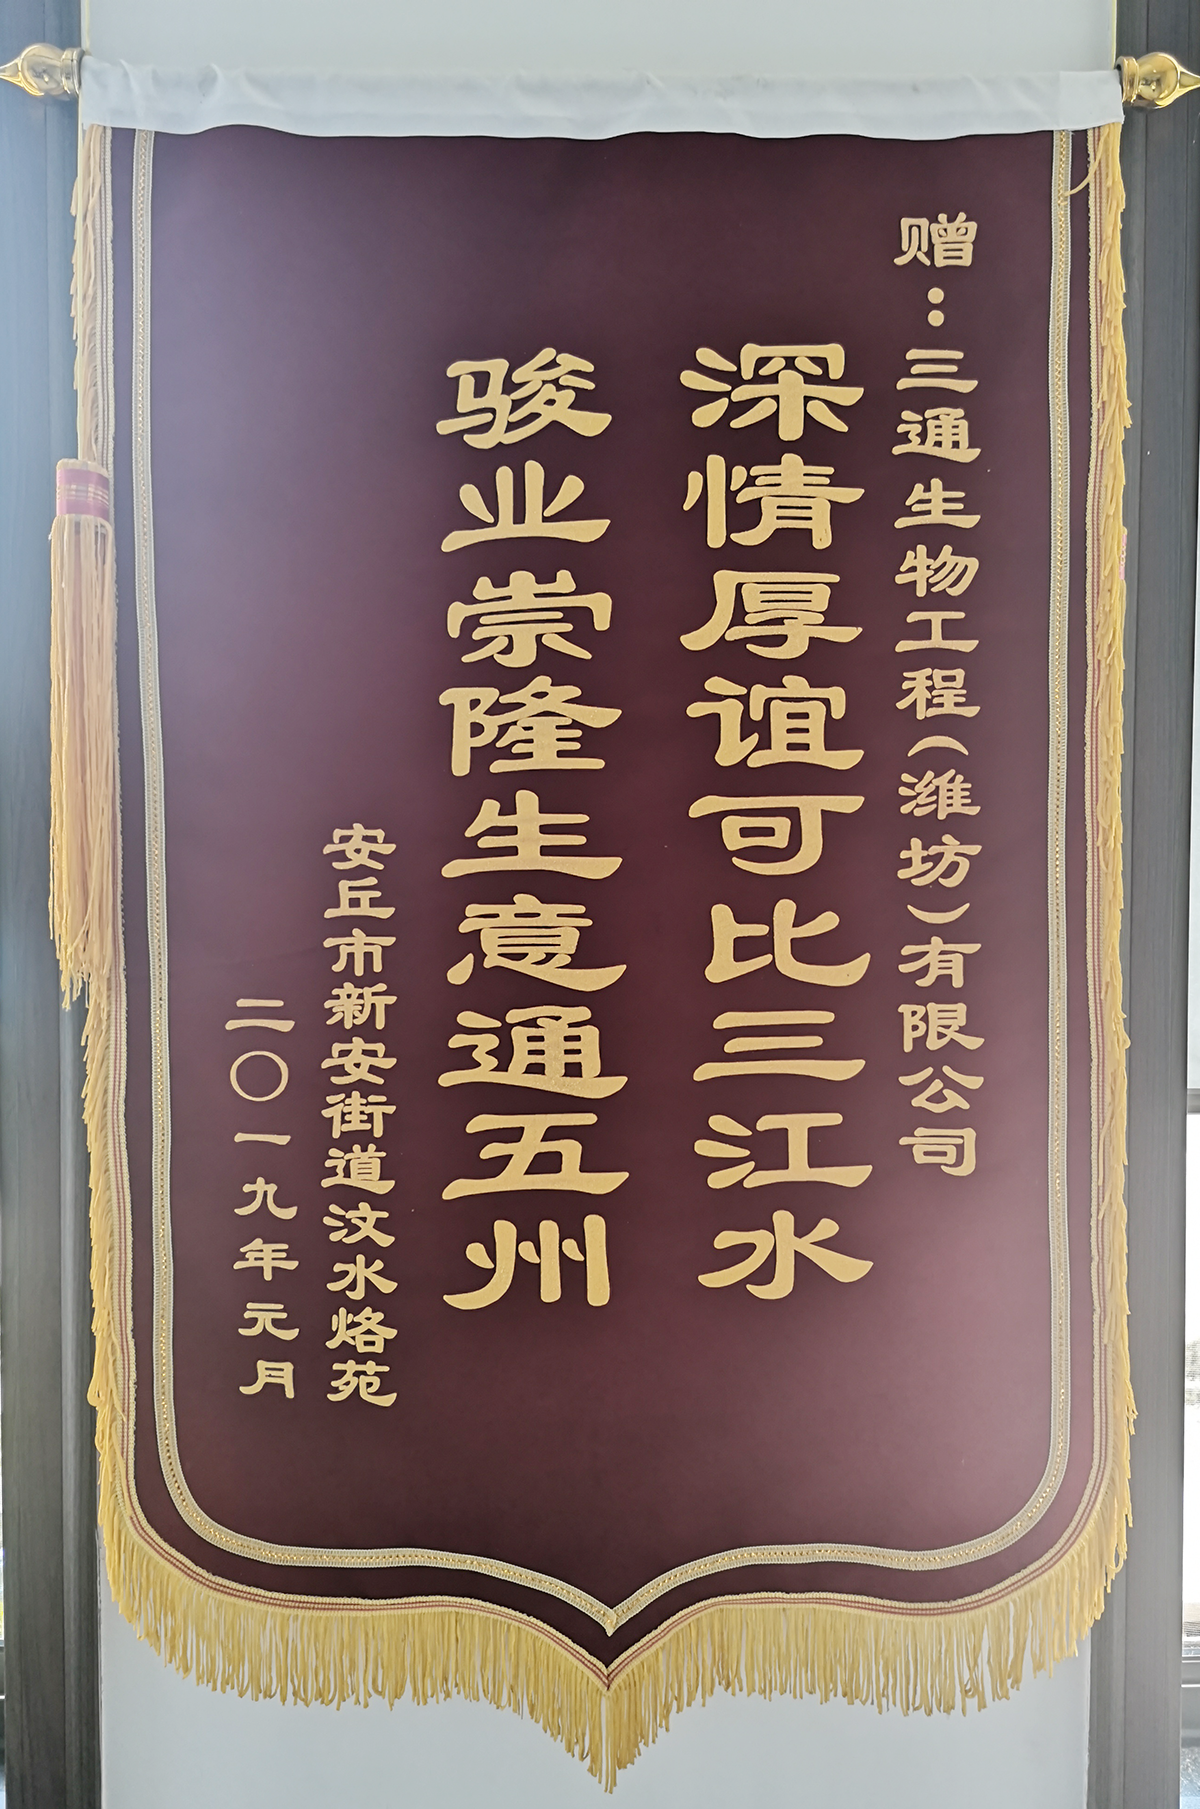 赠：三通生物工程（潍坊）有限公司
深情厚谊可比三江水
骏业崇隆生意通五州
安丘市新安街道汶水烙苑
二〇一九年元月